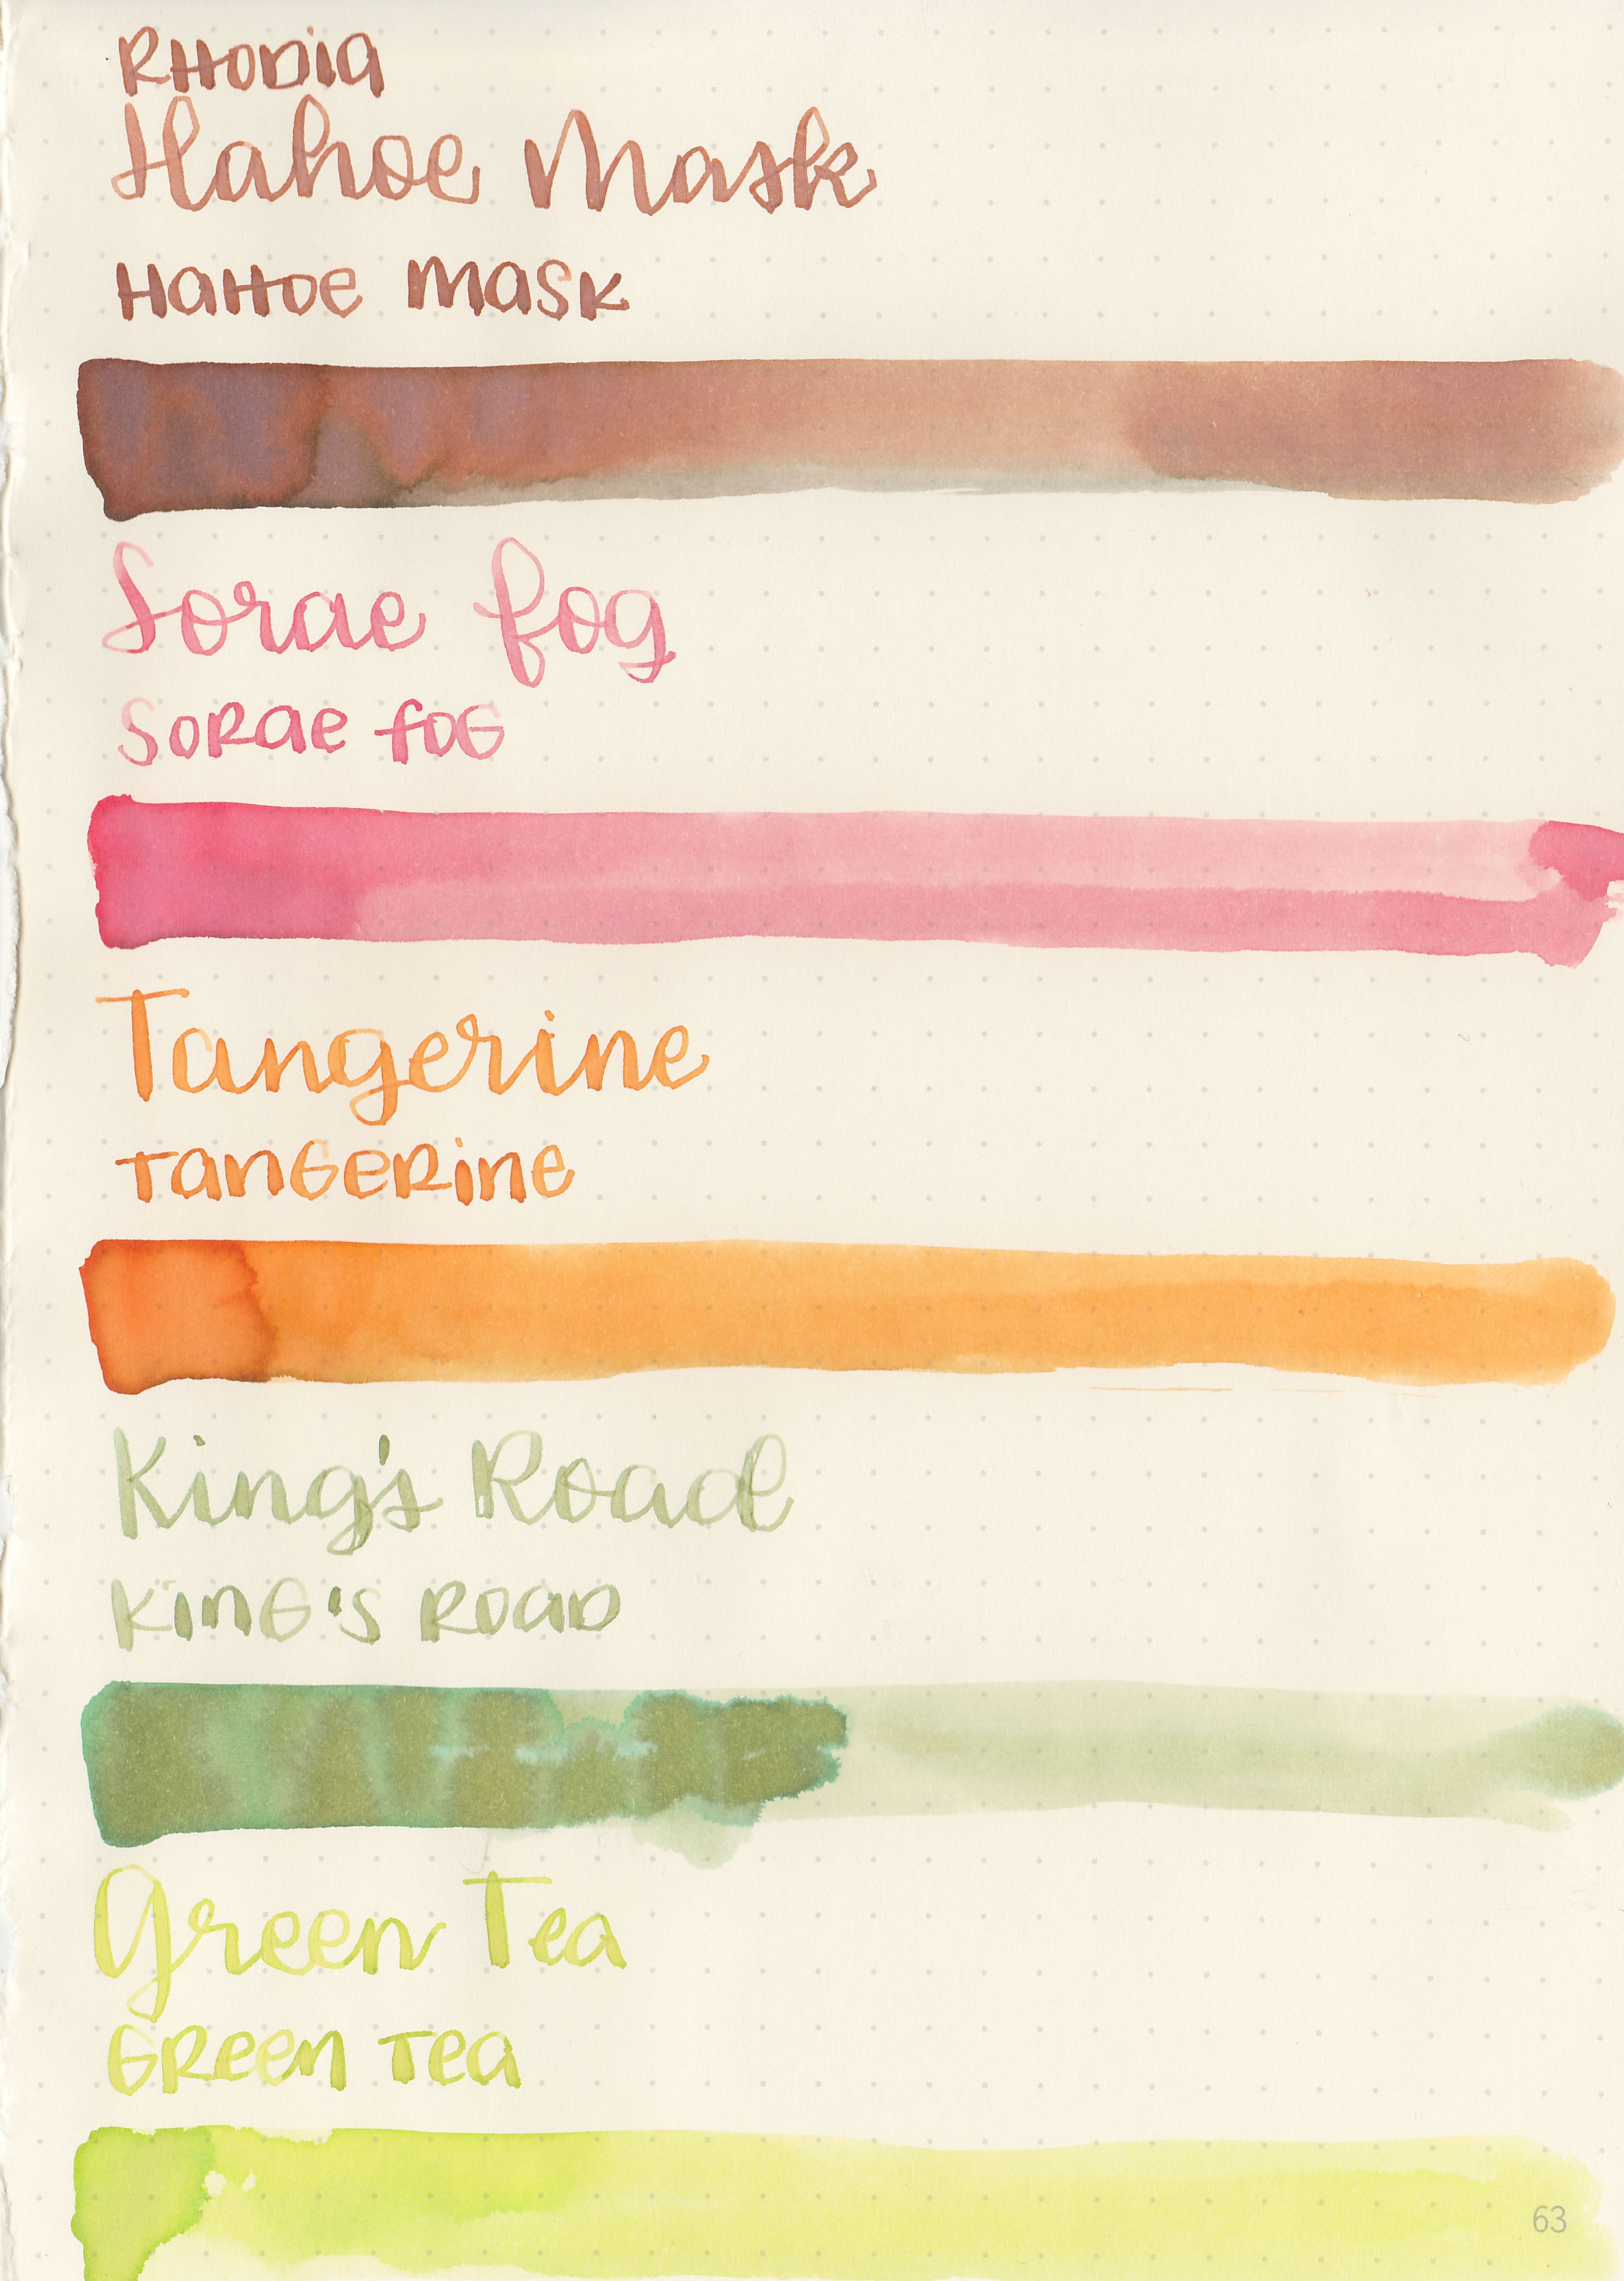 RHODIA
Hahoe Mask
HAHOE MASK
Sorae fog
SORAE FOG
Tangerine
TANGERINE
King's Road
KING'S ROAD
Green Tea
GREEN TEA
63